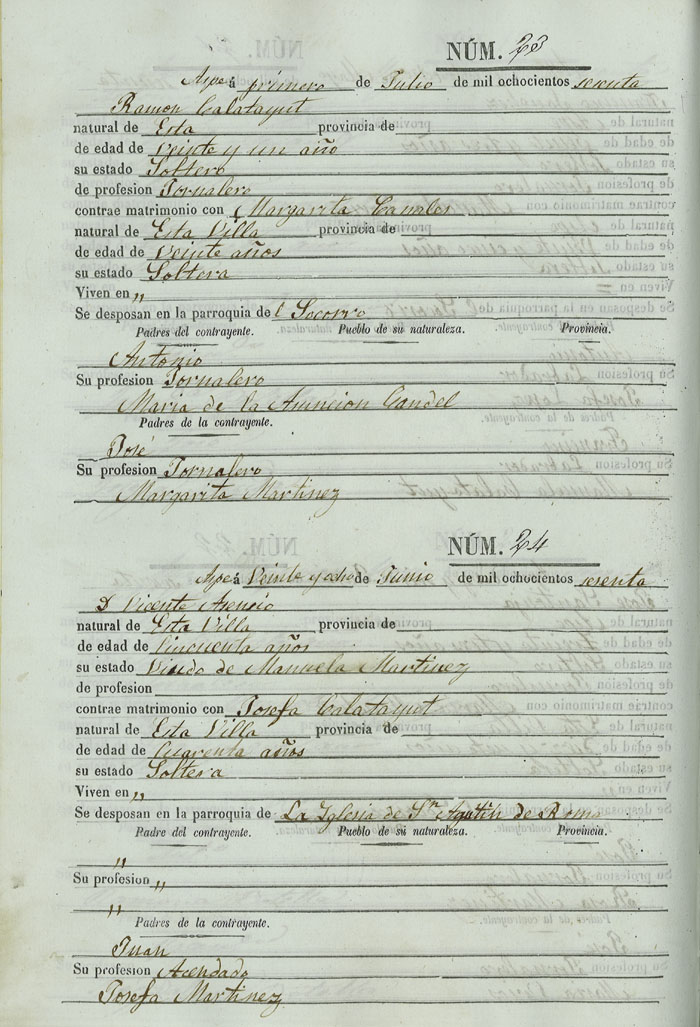 NÚM. 23
Aspe á primero de Julio de mil ochocientos sesenta
Ramon Calatayut
natural de Esta provincia de
de edad de Veinte y un año
su estado Soltero
de profesion Jornalero
contrae matrimonio con Margarita Canales
natural de Esta Villa provincia de
de edad de Veinte años
su estado Soltera
Viven en "
Se desposan en la parroquia de l Socorro
Padres del contrayente. Pueblo de su naturaleza. Provincia.
Antonio
Su profesion Jornalero
Maria de la Asuncion Candel
Padres de la contrayente.
José
Su profesion Jornalero
Margarita Martinez
NÚM. 24
Aspe á Veinte y ocho de Junio de mil ochocientos sesenta
D Vicente Asensio
natural de Esta Villa provincia de
de edad de Cincuenta años
su estado Viudo de Manuela Martinez
de profesion
contrae matrimonio con Josefa Calatayut
natural de Esta Villa provincia de
de edad de Cuarenta años
su estado Soltera
Viven en "
Se desposan en la parroquia de La Iglesia de Sn Agutin de Roma
Padre del contrayente. Pueblo de su naturaleza. Provincia.
"
Su profesion "
"
Padres de la contrayente.
Juan
Su profesion Acendado
Josefa Martinez